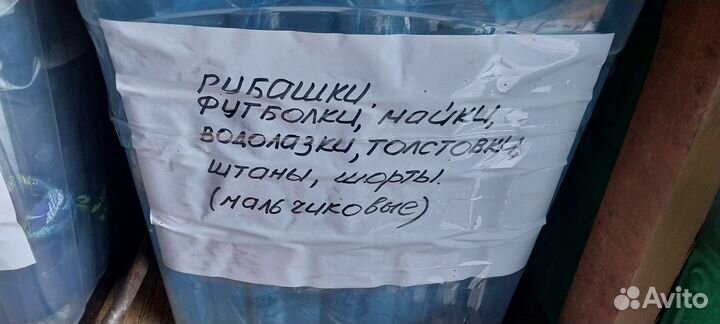 РУБАШКИ,
ФУТБОЛКИ, МАЙКИ,
ВОДОЛАЗКИ, ТОЛСТОВКИ,
ШТАНЫ, ШОРТЫ.
(МАЛЬЧИКОВЫЕ)
Avito